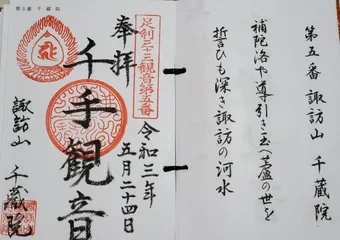 第五番 諏訪山 千蔵院
補陀洛や導引き玉へ盛の世を
誓ひも深き諏訪の河水
第5番 千蔵院
足利三十三観音第五番
奉拝
千手観音
令和三年
五月二十四日
諏訪山 千蔵院